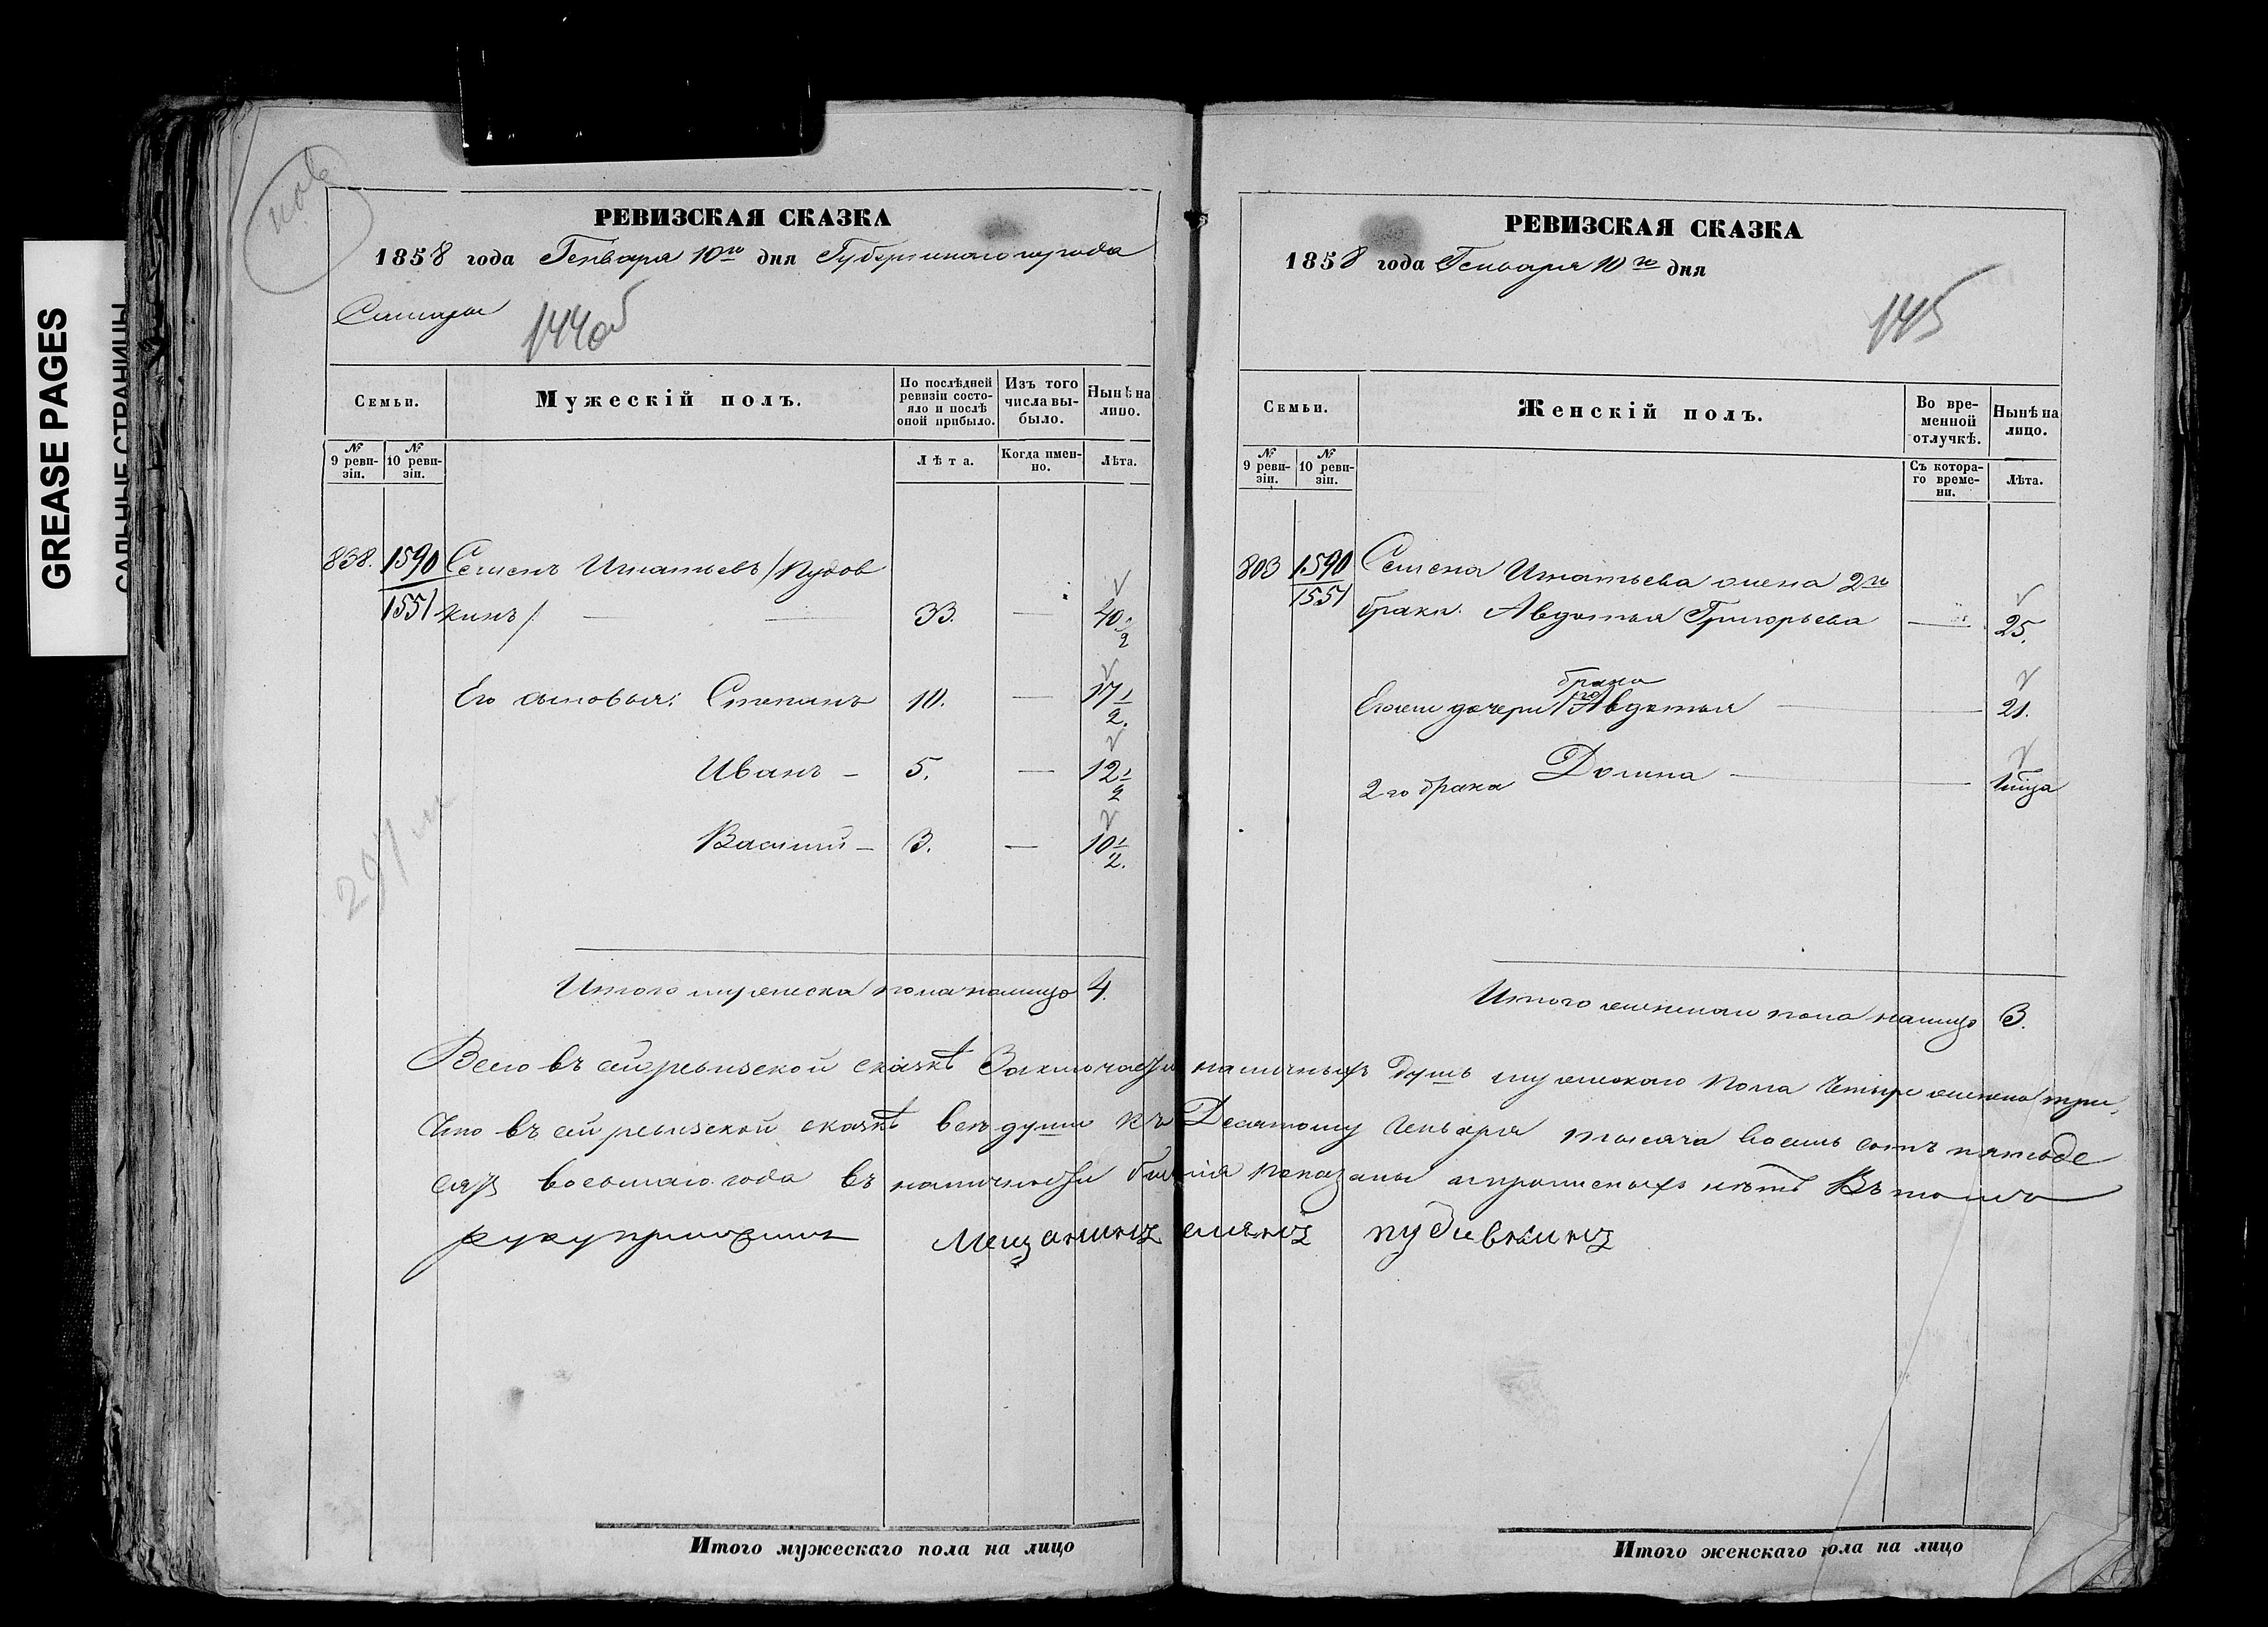 GREASE PAGES
САЛЬНЫЕ СТРАНИЦЫ
РЕВИЗСКАЯ СКАЗКА
1858 года Генваря 10го дня Губернскаго города
Самары
144об
Семьи.
Мужескій полъ.
По послѣдней ревизіи состояло и послѣ оной прибыло.
Изъ того числа выбыло.
Нынѣ на лицо.
№ 9 ревизіи.
№ 10 ревизіи.
Лѣта.
Когда именно.
Лѣта.
838. 1590 Семенъ Игнатьевъ /Пудов
1551 кинъ/. — 33. — 40 1/2
Его сыновья: Степанъ 10. — 17 1/2.
Иванъ — 5. — 12 1/2
Василий — 3. — 10 1/2.
Итого мужеска пола налицо 4.
РЕВИЗСКАЯ СКАЗКА
1858 года Генваря 10го дня
145
Семьи.
Женскій полъ.
Во временной отлучкѣ.
Нынѣ на лицо.
№ 9 ревизіи.
№ 10 ревизіи.
Съ котораго времени.
Лѣта.
803 1590 Семена Игнатьева жена 2го
1551 брака. Авдотья Григорьева — 25.
брака
дочери Авдотья — 21.
2го брака Домна —
Итого женскаго пола налицо 3.
Всего въ сей ревизской сказкѣ Заключается наличныхъ душъ мужескаго пола Четыре женска три,
Что въ сей ревизской сказкѣ все души къ Десятому Генваря тысяча восемь сотъ пятьде
сят восьмаго года въ наличности показаны а прописныхъ нѣтъ Въ томъ
руку приложилъ мещанинъ пудовкинъ
Итого мужескаго пола на лицо
Итого женскаго пола на лицо